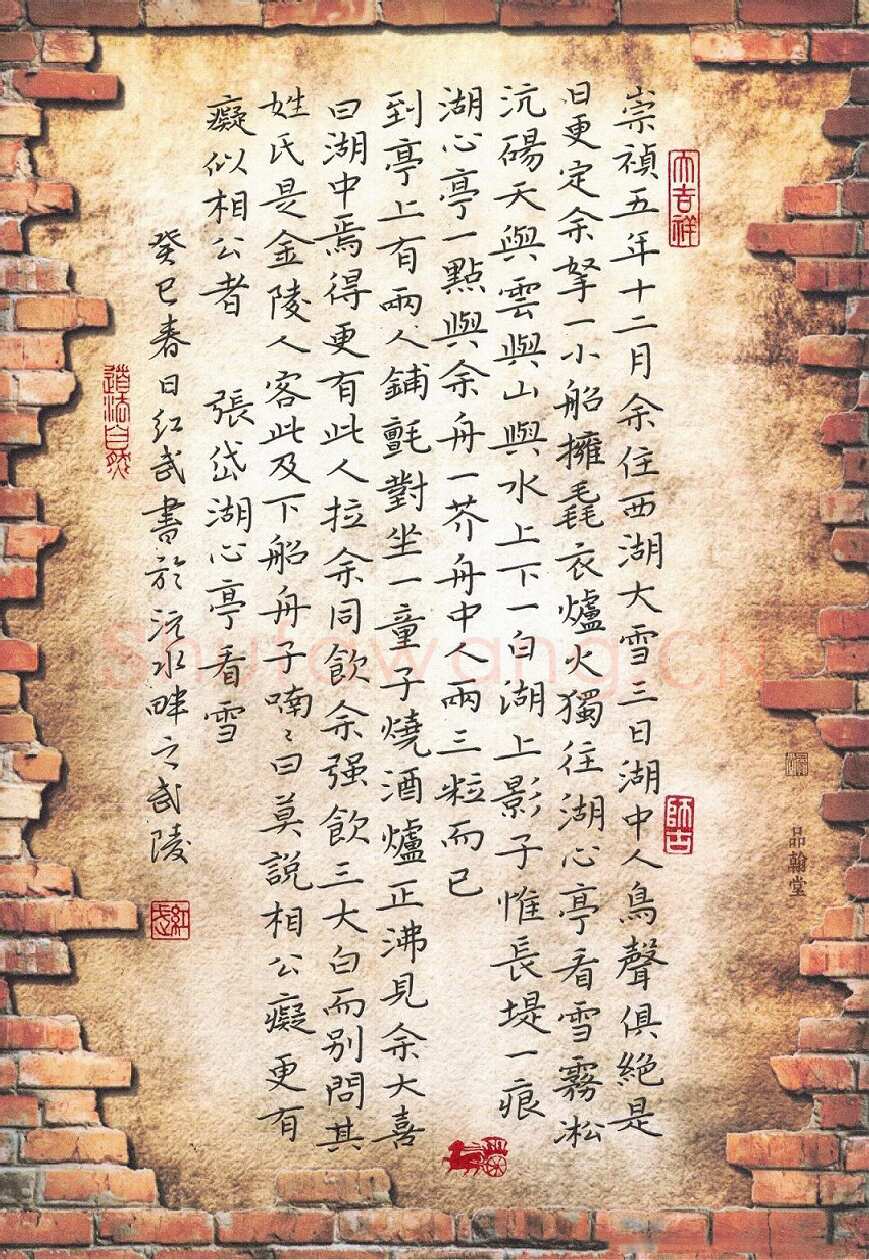 大吉祥
崇禎五年十二月余住西湖大雪三日湖中人鳥聲俱絕是
日更定余拏一小船擁毳衣爐火獨往湖心亭看雪霧淞
沆碭天與雲與山與水上下一白湖上影子惟長堤一痕
湖心亭一點與余舟一芥舟中人兩三粒而已
到亭上有兩人鋪氈對坐一童子燒酒爐正沸見余大喜
曰湖中焉得更有此人拉余同飲余强飲三大白而別問其
姓氏是金陵人客此及下船舟子喃〻曰莫說相公癡更有
癡似相公者 張岱湖心亭看雪
癸巳春日紅武書於沅水畔之武陵
師古
道法自然
紅武
品翰堂
shufawang.CN